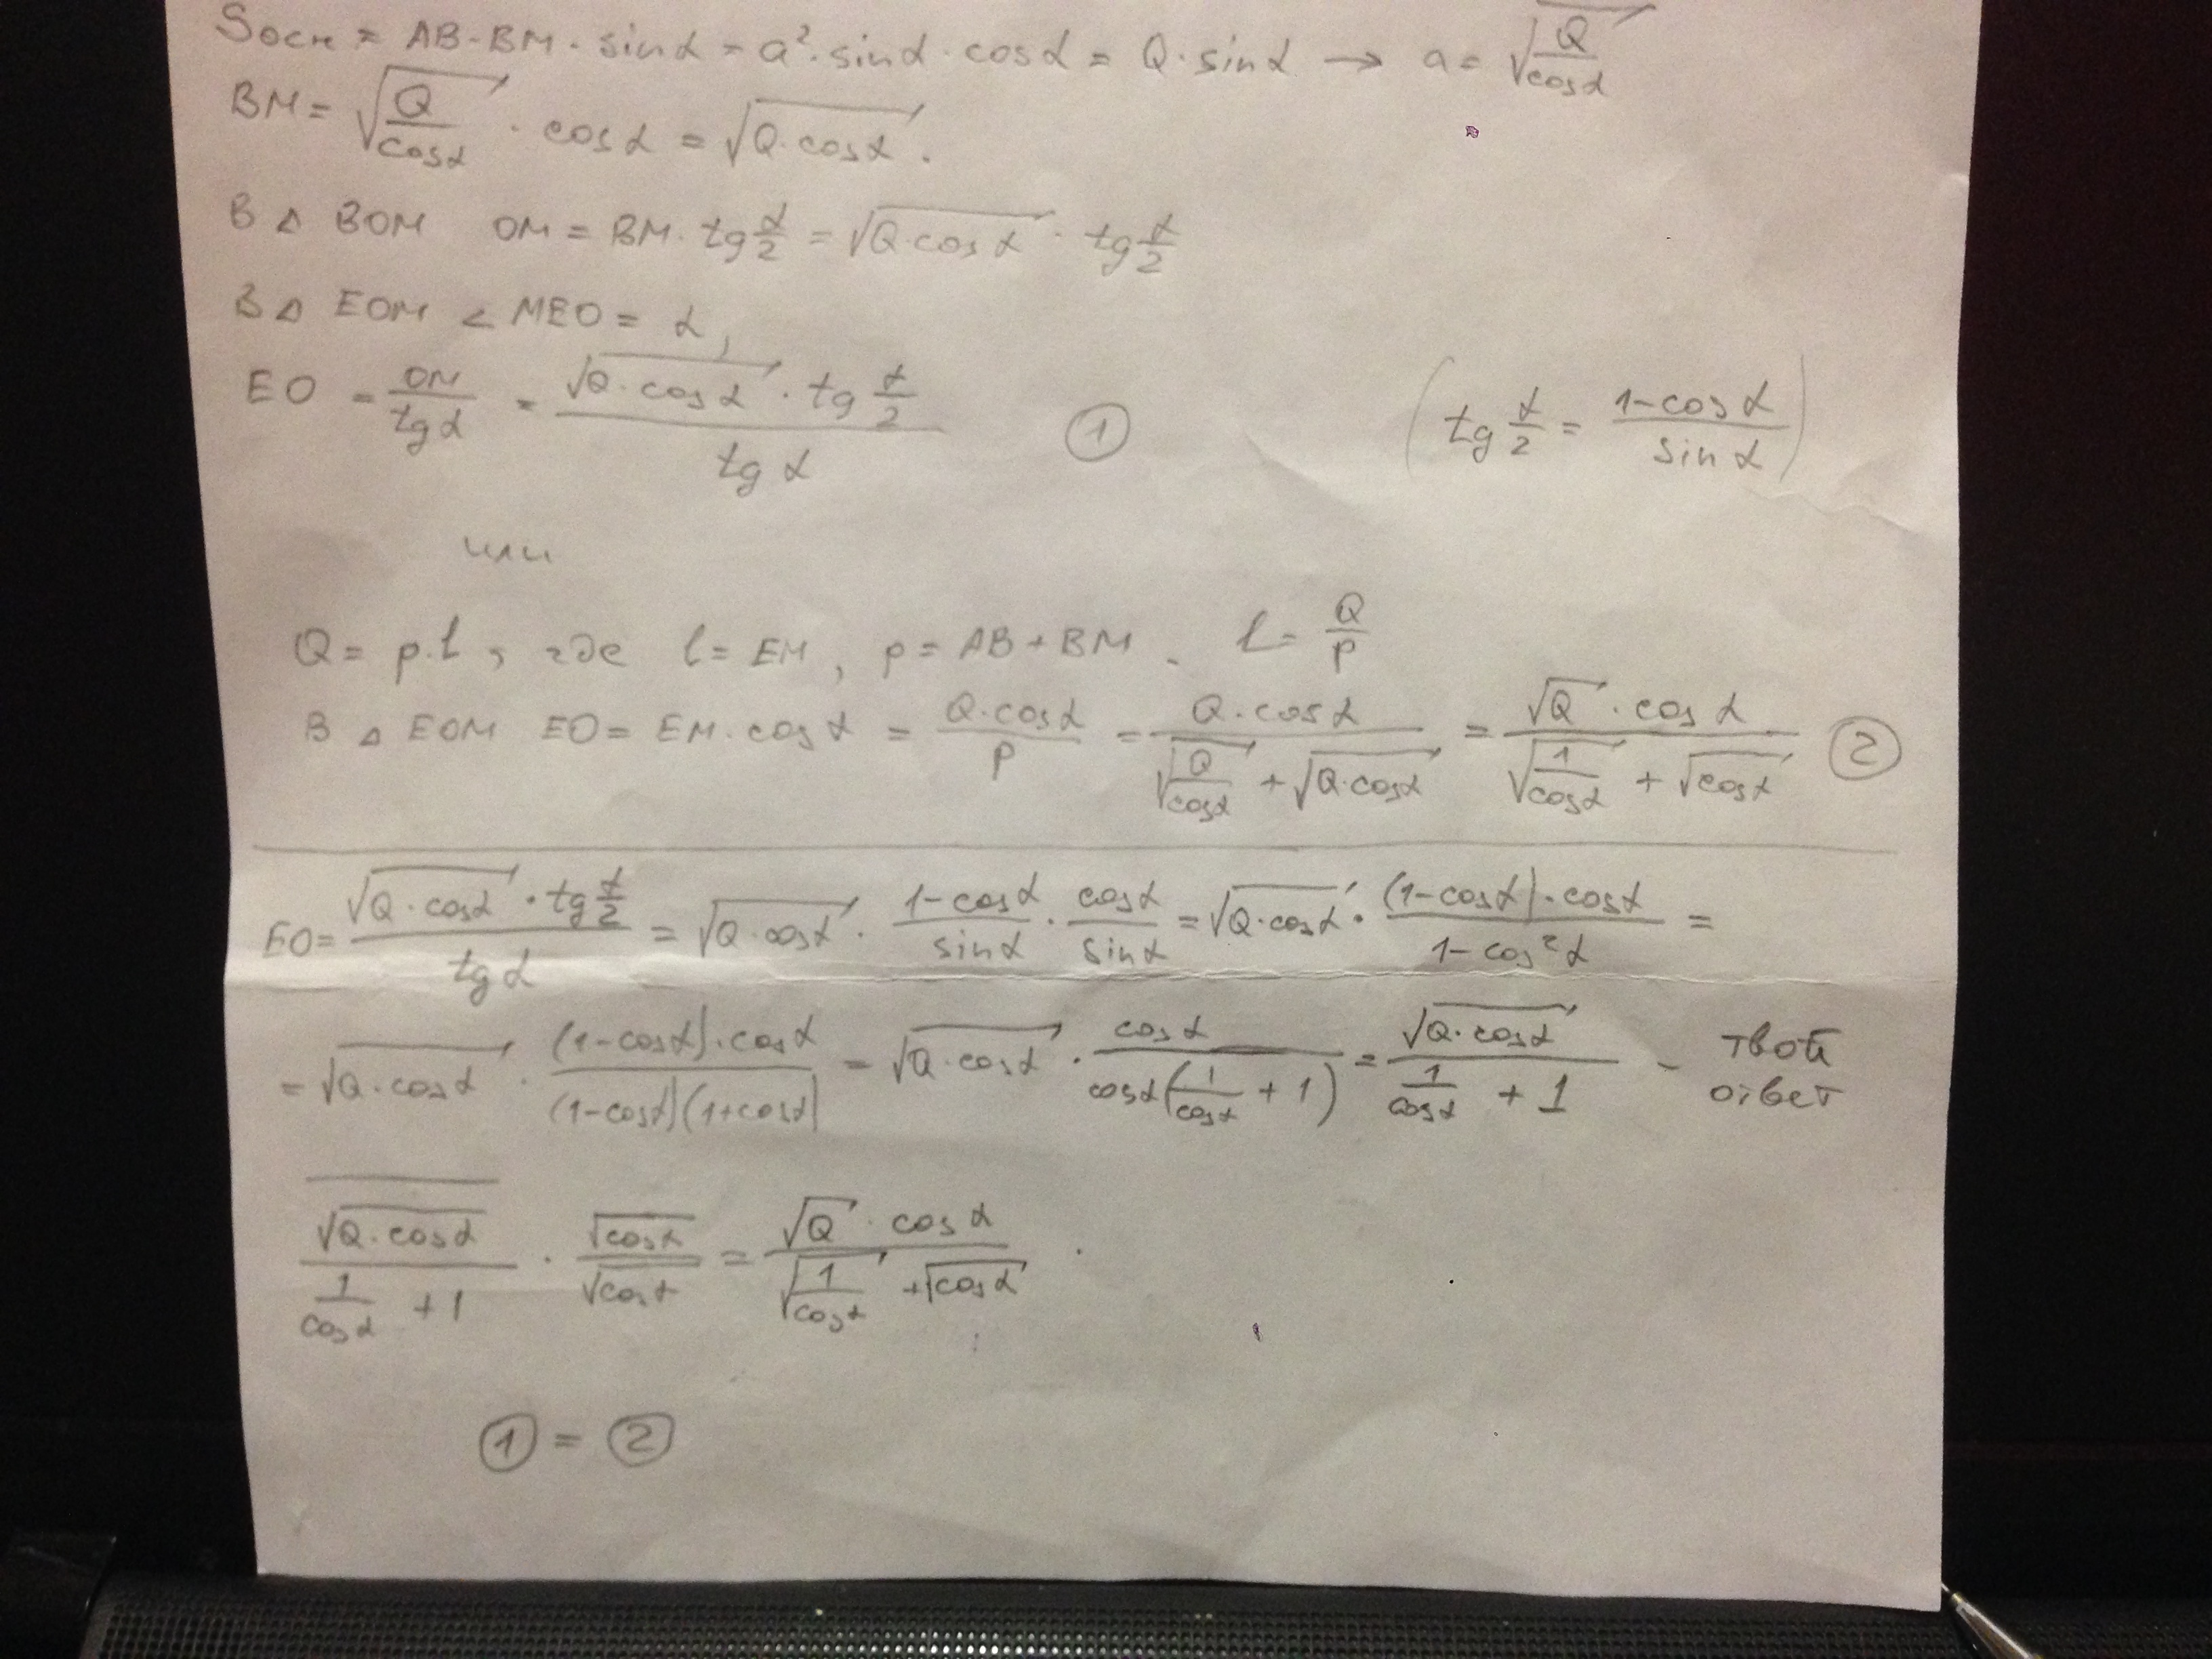 Sосн = AB·BM·sinα = a²·sinα·cosα = Q·sinα → a = √(Q/cosα)
BM = √(Q/cosα) · cosα = √(Q·cosα).
В △ BOM OM = BM·tg α/2 = √(Q·cosα) · tg α/2
В △ EOM ∠MEO = α,
EO = OM/tgα = (√(Q·cosα) · tg α/2)/tgα ① (tg α/2 = (1-cosα)/sinα)
или
Q = p·l, где l = EM, p = AB+BM. l = Q/p
В △ EOM EO = EM·cosα = (Q·cosα)/p = (Q·cosα)/(√(Q/cosα) + √(Q·cosα)) = (√Q · cosα)/(√(1/cosα) + √cosα) ②
EO = (√(Q·cosα) · tg α/2)/tgα = √(Q·cosα) · (1-cosα)/sinα · cosα/sinα = √(Q·cosα) · ((1-cosα)·cosα)/(1-cos²α) =
= √(Q·cosα) · ((1-cosα)·cosα)/((1-cosα)(1+cosα)) = √(Q·cosα) · cosα/(cosα(1/cosα + 1)) = √(Q·cosα)/(1/cosα + 1) - твой ответ
√(Q·cosα)/(1/cosα + 1) · √cosα/√cosα = (√Q · cosα)/(√(1/cosα) + √cosα).
① = ②